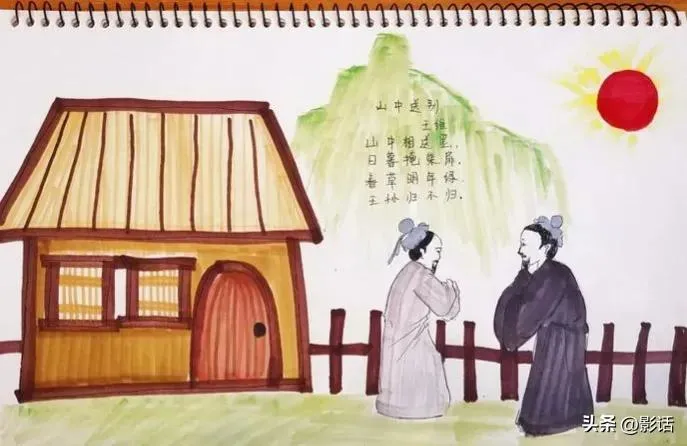 山中送别
王维
山中相送罢，
日暮掩柴扉。
春草明年绿，
王孙归不归。
头条 @影话